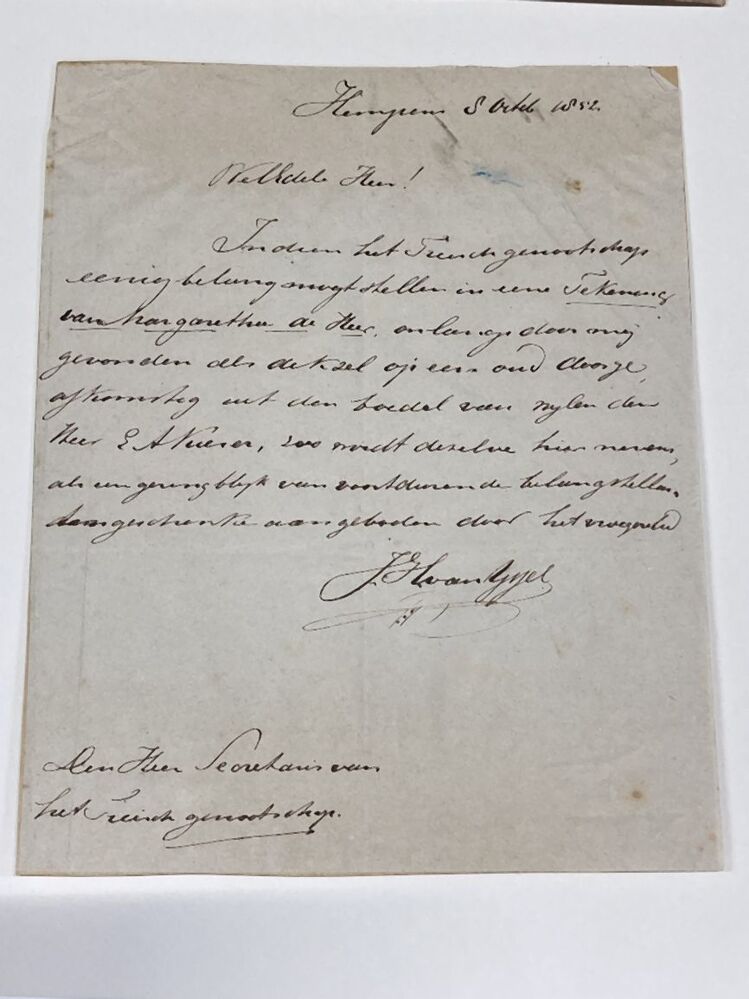 Hempens 8 Octob 1852.
WelEdele Heer!
Indien het Friesch genootschap
eenig belang mogt stellen in eene Tekening
van Margaretha de Heer, onlangs door mij
gevonden als deksel op een oud doosje,
afkomstig uit den boedel van wylen den
Heer E A ..., zoo wordt dezelve hier nevens,
als een gering blyk van voortdurende belangstelling,
ten geschenke aangeboden door het
J H van
Den Heer Secretaris van
het Friesch genootschap.